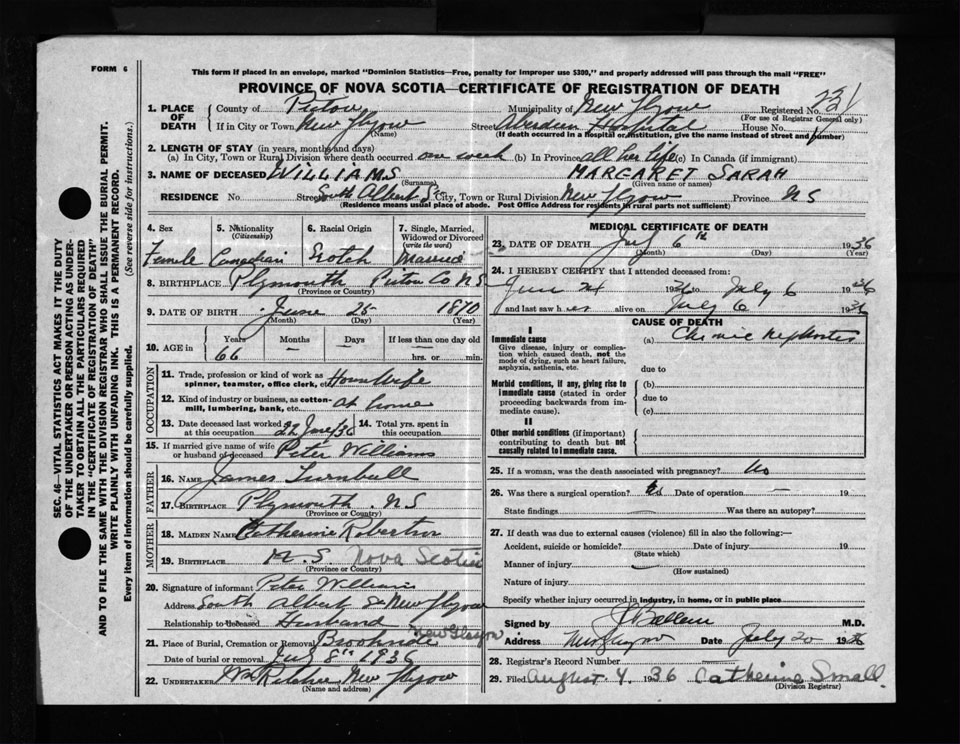 FORM 6
This form if placed in an envelope, marked "Dominion Statistics—Free, penalty for improper use $300," and properly addressed will pass through the mail "FREE"
PROVINCE OF NOVA SCOTIA—CERTIFICATE OF REGISTRATION OF DEATH
1. PLACE OF DEATH County of Pictou Municipality of New Glasgow Registered No.
(For use of Registrar General only)
If in City or Town New Glasgow (Name) Street Aberdeen Hospital House No.
(If death occurred in a hospital or institution, give the name instead of street and number)
2. LENGTH OF STAY (in years, months and days)
(a) In City, Town or Rural Division where death occurred one week (b) In Province all her life (c) In Canada (if immigrant)
3. NAME OF DECEASED WILLIAMS (Surname) MARGARET SARAH (Given name or names)
RESIDENCE No. Street South Albert St City, or Town or Rural Division New Glasgow Province N S
(Residence means usual place of abode. Post Office Address for residents in rural parts not sufficient)
SEC. 46—VITAL STATISTICS ACT MAKES IT THE DUTY
OF THE UNDERTAKER OR PERSON ACTING AS UNDER-
TAKER TO OBTAIN ALL THE PARTICULARS REQUIRED
IN THE "CERTIFICATE OF REGISTRATION OF DEATH"
AND TO FILE THE SAME WITH THE DIVISION REGISTRAR WHO SHALL ISSUE THE BURIAL PERMIT.
WRITE PLAINLY WITH UNFADING INK. THIS IS A PERMANENT RECORD.
Every item of information should be carefully supplied. (See reverse side for instructions.)
4. Sex Female
5. Nationality (Citizenship) Canadian
6. Racial Origin Scotch
7. Single, Married, Widowed or Divorced (write the word) Married
8. BIRTHPLACE Plymouth Pictou Co N S
(Province or Country)
9. DATE OF BIRTH June 25 1870
(Month) (Day) (Year)
10. AGE in Years 66 Months — Days — If less than one day
hrs. or min.
OCCUPATION
11. Trade, profession or kind of work as spinner, teamster, office clerk, etc. Housewife
12. Kind of industry or business, as cotton-mill, lumbering, bank, etc. at home
13. Date deceased last worked at this occupation 22 June/36
14. Total yrs. spent in this occupation
15. If married give name of wife or husband of deceased Peter Williams
FATHER
16. NAME James Turnbull
17. BIRTHPLACE Plymouth N S
(Province or Country)
MOTHER
18. MAIDEN NAME Catherine Robertson
19. BIRTHPLACE N.S. Nova Scotia
(Province or Country)
20. Signature of informant Peter Williams
Address South Albert St New Glasgow
Relationship to deceased Husband
21. Place of Burial, Cremation or Removal New Glasgow
Date of burial or removal July 8th 1936
22. UNDERTAKER Wm Ritchie New Glasgow
(Name and address)
MEDICAL CERTIFICATE OF DEATH
23. DATE OF DEATH July 6th 1936
(Month) (Day) (Year)
24. I HEREBY CERTIFY that I attended deceased from:
June 24 1936 to July 6 1936
and last saw her alive on July 6 1936
CAUSE OF DEATH
I
Immediate cause
Give disease, injury or complication which caused death, not the mode of dying, such as heart failure, asphyxia, asthenia, etc.
(a) Chronic Nephritis
due to
Morbid conditions, if any, giving rise to immediate cause (stated in order proceeding backwards from immediate cause).
(b)
due to
(c)
II
Other morbid conditions (if important) contributing to death but not causally related to immediate cause.
25. If a woman, was the death associated with pregnancy? No
26. Was there a surgical operation? No Date of operation — 19
State findings Was there an autopsy?
27. If death was due to external causes (violence) fill in also the following:—
Accident, suicide or homicide? Date of injury 19
(State which)
Manner of injury
(How sustained)
Nature of injury
Specify whether injury occurred in industry, in home, or in public place
Signed by M.D.
Address New Glasgow Date July 20 1936
28. Registrar's Record Number
29. Filed August 4 1936 Catherine Small
(Division Registrar)